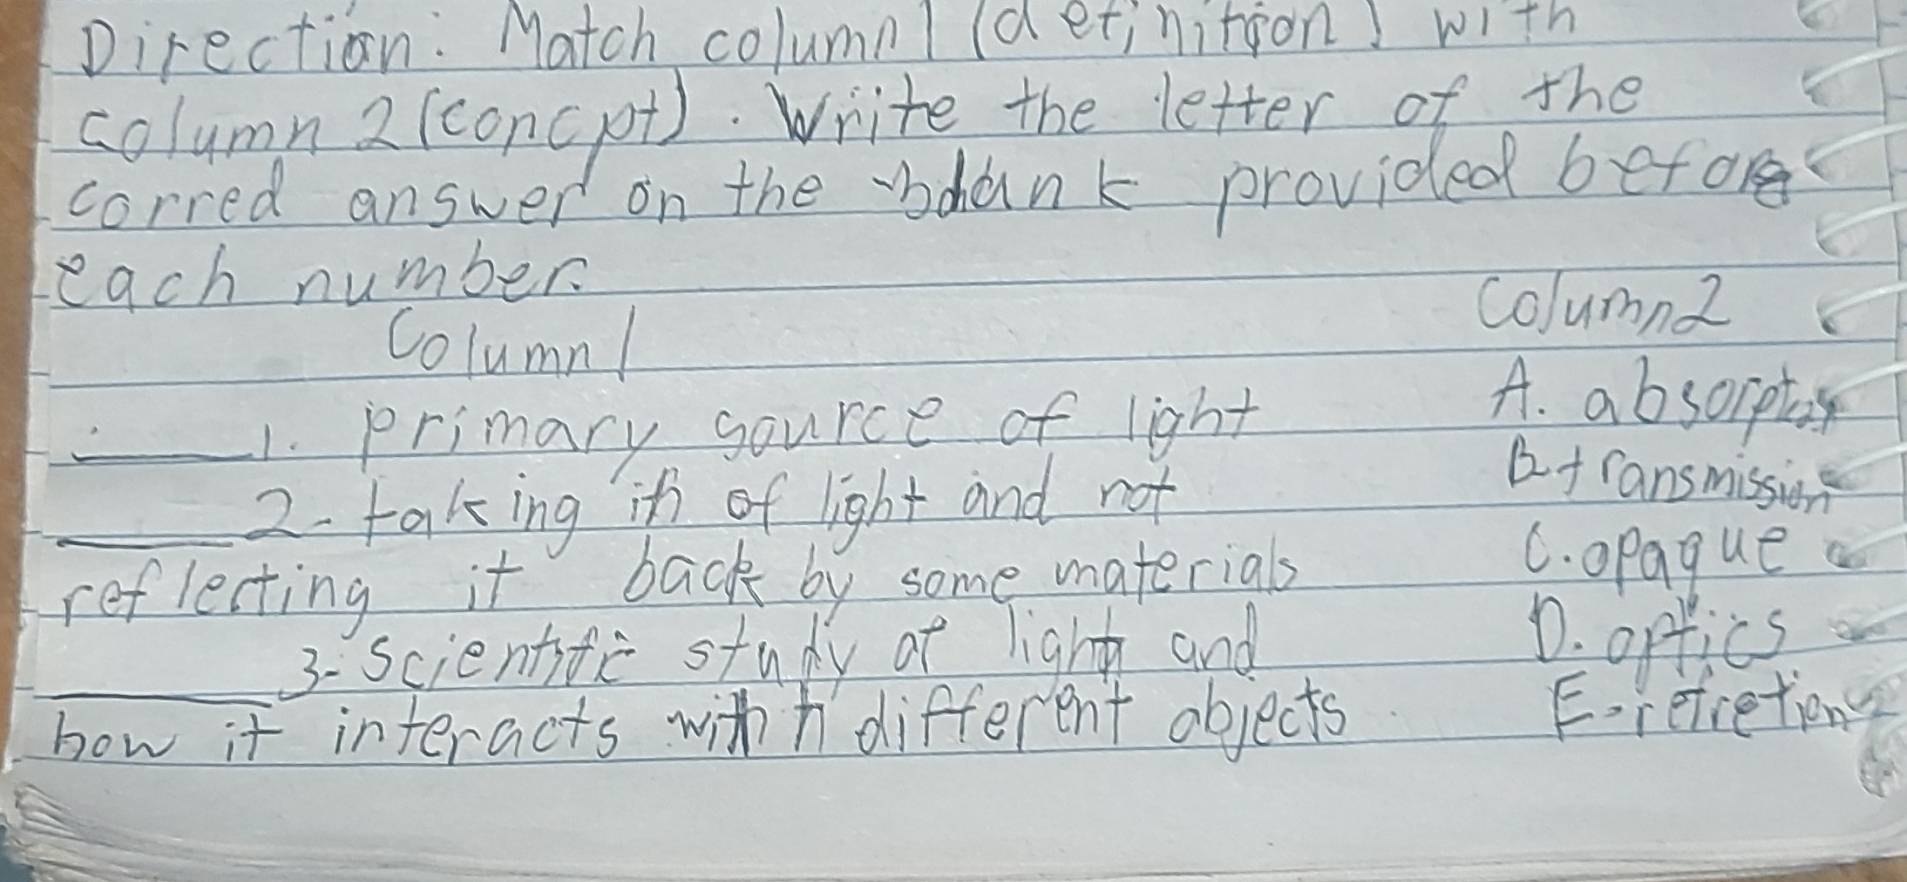 Direction: Match column 1 (definition) with
column 2 (concpt). Write the letter of the
corred answer on the blank provided before
each number.
Column 1
Column 2
1. primary source of light
A. absorption
2- taking in of light and not
B. transmission
reflecting it back by some materials
C. opaque
3- Scientific study of light and
D. optics
how it interacts with different objects.
E. refrection